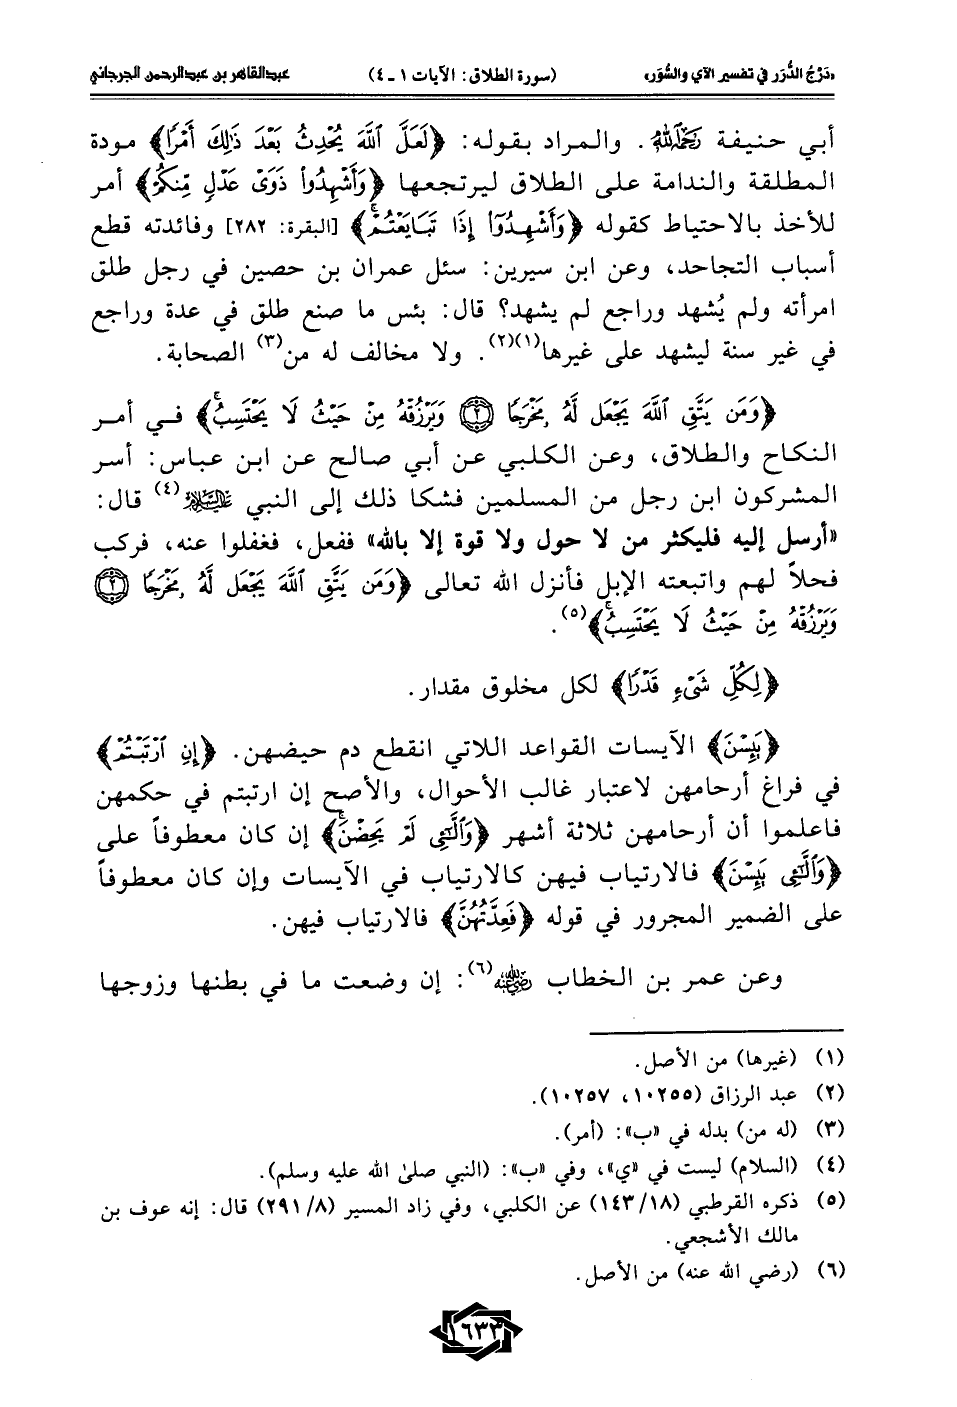 «دَرْجُ الدُّرَر في تفسير الآي والسُّوَر» (سورة الطلاق: الآيات ١ ـ ٤) عبدالقاهر بن عبدالرحمن الجرجاني
أبي حنيفة رَحِمَهُ اللَّهُ. والمراد بقوله: ﴿لَعَلَّ ٱللَّهَ يُحْدِثُ بَعْدَ ذَٰلِكَ أَمْرًا﴾ مودة
المطلقة والندامة على الطلاق ليرتجعها ﴿وَأَشْهِدُوا۟ ذَوَىْ عَدْلٍ مِّنكُمْ﴾ أمر
للأخذ بالاحتياط كقوله ﴿وَأَشْهِدُوٓا۟ إِذَا تَبَايَعْتُمْ ۚ﴾ [البقرة: ٢٨٢] وفائدته قطع
أسباب التجاحد، وعن ابن سيرين: سئل عمران بن حصين في رجل طلق
امرأته ولم يُشهد وراجع لم يشهد؟ قال: بئس ما صنع طلق في عدة وراجع
في غير سنة ليشهد على غيرها(١)(٢). ولا مخالف له من(٣) الصحابة.
﴿وَمَن يَتَّقِ ٱللَّهَ يَجْعَل لَّهُۥ مَخْرَجًا ۝٢ وَيَرْزُقْهُ مِنْ حَيْثُ لَا يَحْتَسِبُ ۚ﴾ في أمر
النكاح والطلاق، وعن الكلبي عن أبي صالح عن ابن عباس: أسر
المشركون ابن رجل من المسلمين فشكا ذلك إلى النبي عَلَيْهِ السَّلَام(٤) قال:
«أرسل إليه فليكثر من لا حول ولا قوة إلا بالله» ففعل، فغفلوا عنه، فركب
فحلاً لهم واتبعته الإبل فأنزل الله تعالى ﴿وَمَن يَتَّقِ ٱللَّهَ يَجْعَل لَّهُۥ مَخْرَجًا ۝٢
وَيَرْزُقْهُ مِنْ حَيْثُ لَا يَحْتَسِبُ ۚ﴾(٥).
﴿لِكُلِّ شَىْءٍ قَدْرًا﴾ لكل مخلوق مقدار.
﴿يَئِسْنَ﴾ الآيسات القواعد اللاتي انقطع دم حيضهن. ﴿إِنِ ٱرْتَبْتُمْ﴾
في فراغ أرحامهن لاعتبار غالب الأحوال، والأصح إن ارتبتم في حكمهن
فاعلموا أن أرحامهن ثلاثة أشهر ﴿وَٱلَّٰٓـِٔى لَمْ يَحِضْنَ ۚ﴾ إن كان معطوفاً على
﴿وَٱلَّٰٓـِٔى يَئِسْنَ﴾ فالارتياب فيهن كالارتياب في الآيسات وإن كان معطوفاً
على الضمير المجرور في قوله ﴿فَعِدَّتُهُنَّ﴾ فالارتياب فيهن.
وعن عمر بن الخطاب رَضِيَ اللَّهُ عَنْهُ(٦): إن وضعت ما في بطنها وزوجها
(١) (غيرها) من الأصل.
(٢) عبد الرزاق (١٠٢٥٥، ١٠٢٥٧).
(٣) (له من) بدله في «ب»: (أمر).
(٤) (السلام) ليست في «ي»، وفي «ب»: (النبي صلىٰ الله عليه وسلم).
(٥) ذكره القرطبي (١٤٣/١٨) عن الكلبي، وفي زاد المسير (٢٩١/٨) قال: إنه عوف بن
مالك الأشجعي.
(٦) (رضي الله عنه) من الأصل.
١٦٣٣